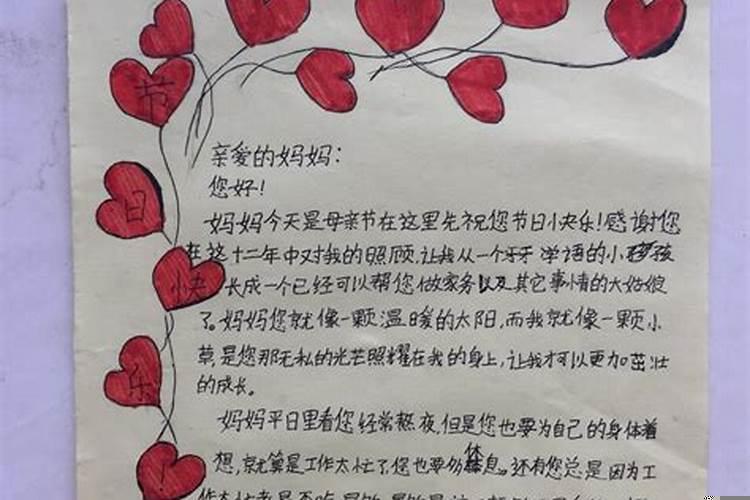 节
日
快
乐
!
亲爱的妈妈:
您好!
妈妈今天是母亲节在这里先祝您节日快乐!感谢您
在这十二年中对我的照顾,让我从一个牙牙学语的小孩
长成一个已经可以帮您做家务以及其它事情的大姑娘
了。妈妈您就像一颗温暖的太阳,而我就像一颗小
草,是您那无私的光芒照耀在我的身上,让我才可以更加茁壮
的成长。
妈妈平日里看您经常熬夜,但是您也要为自己的身体着
想,就算是工作太忙了,您也要多休息。还有您总是因为工